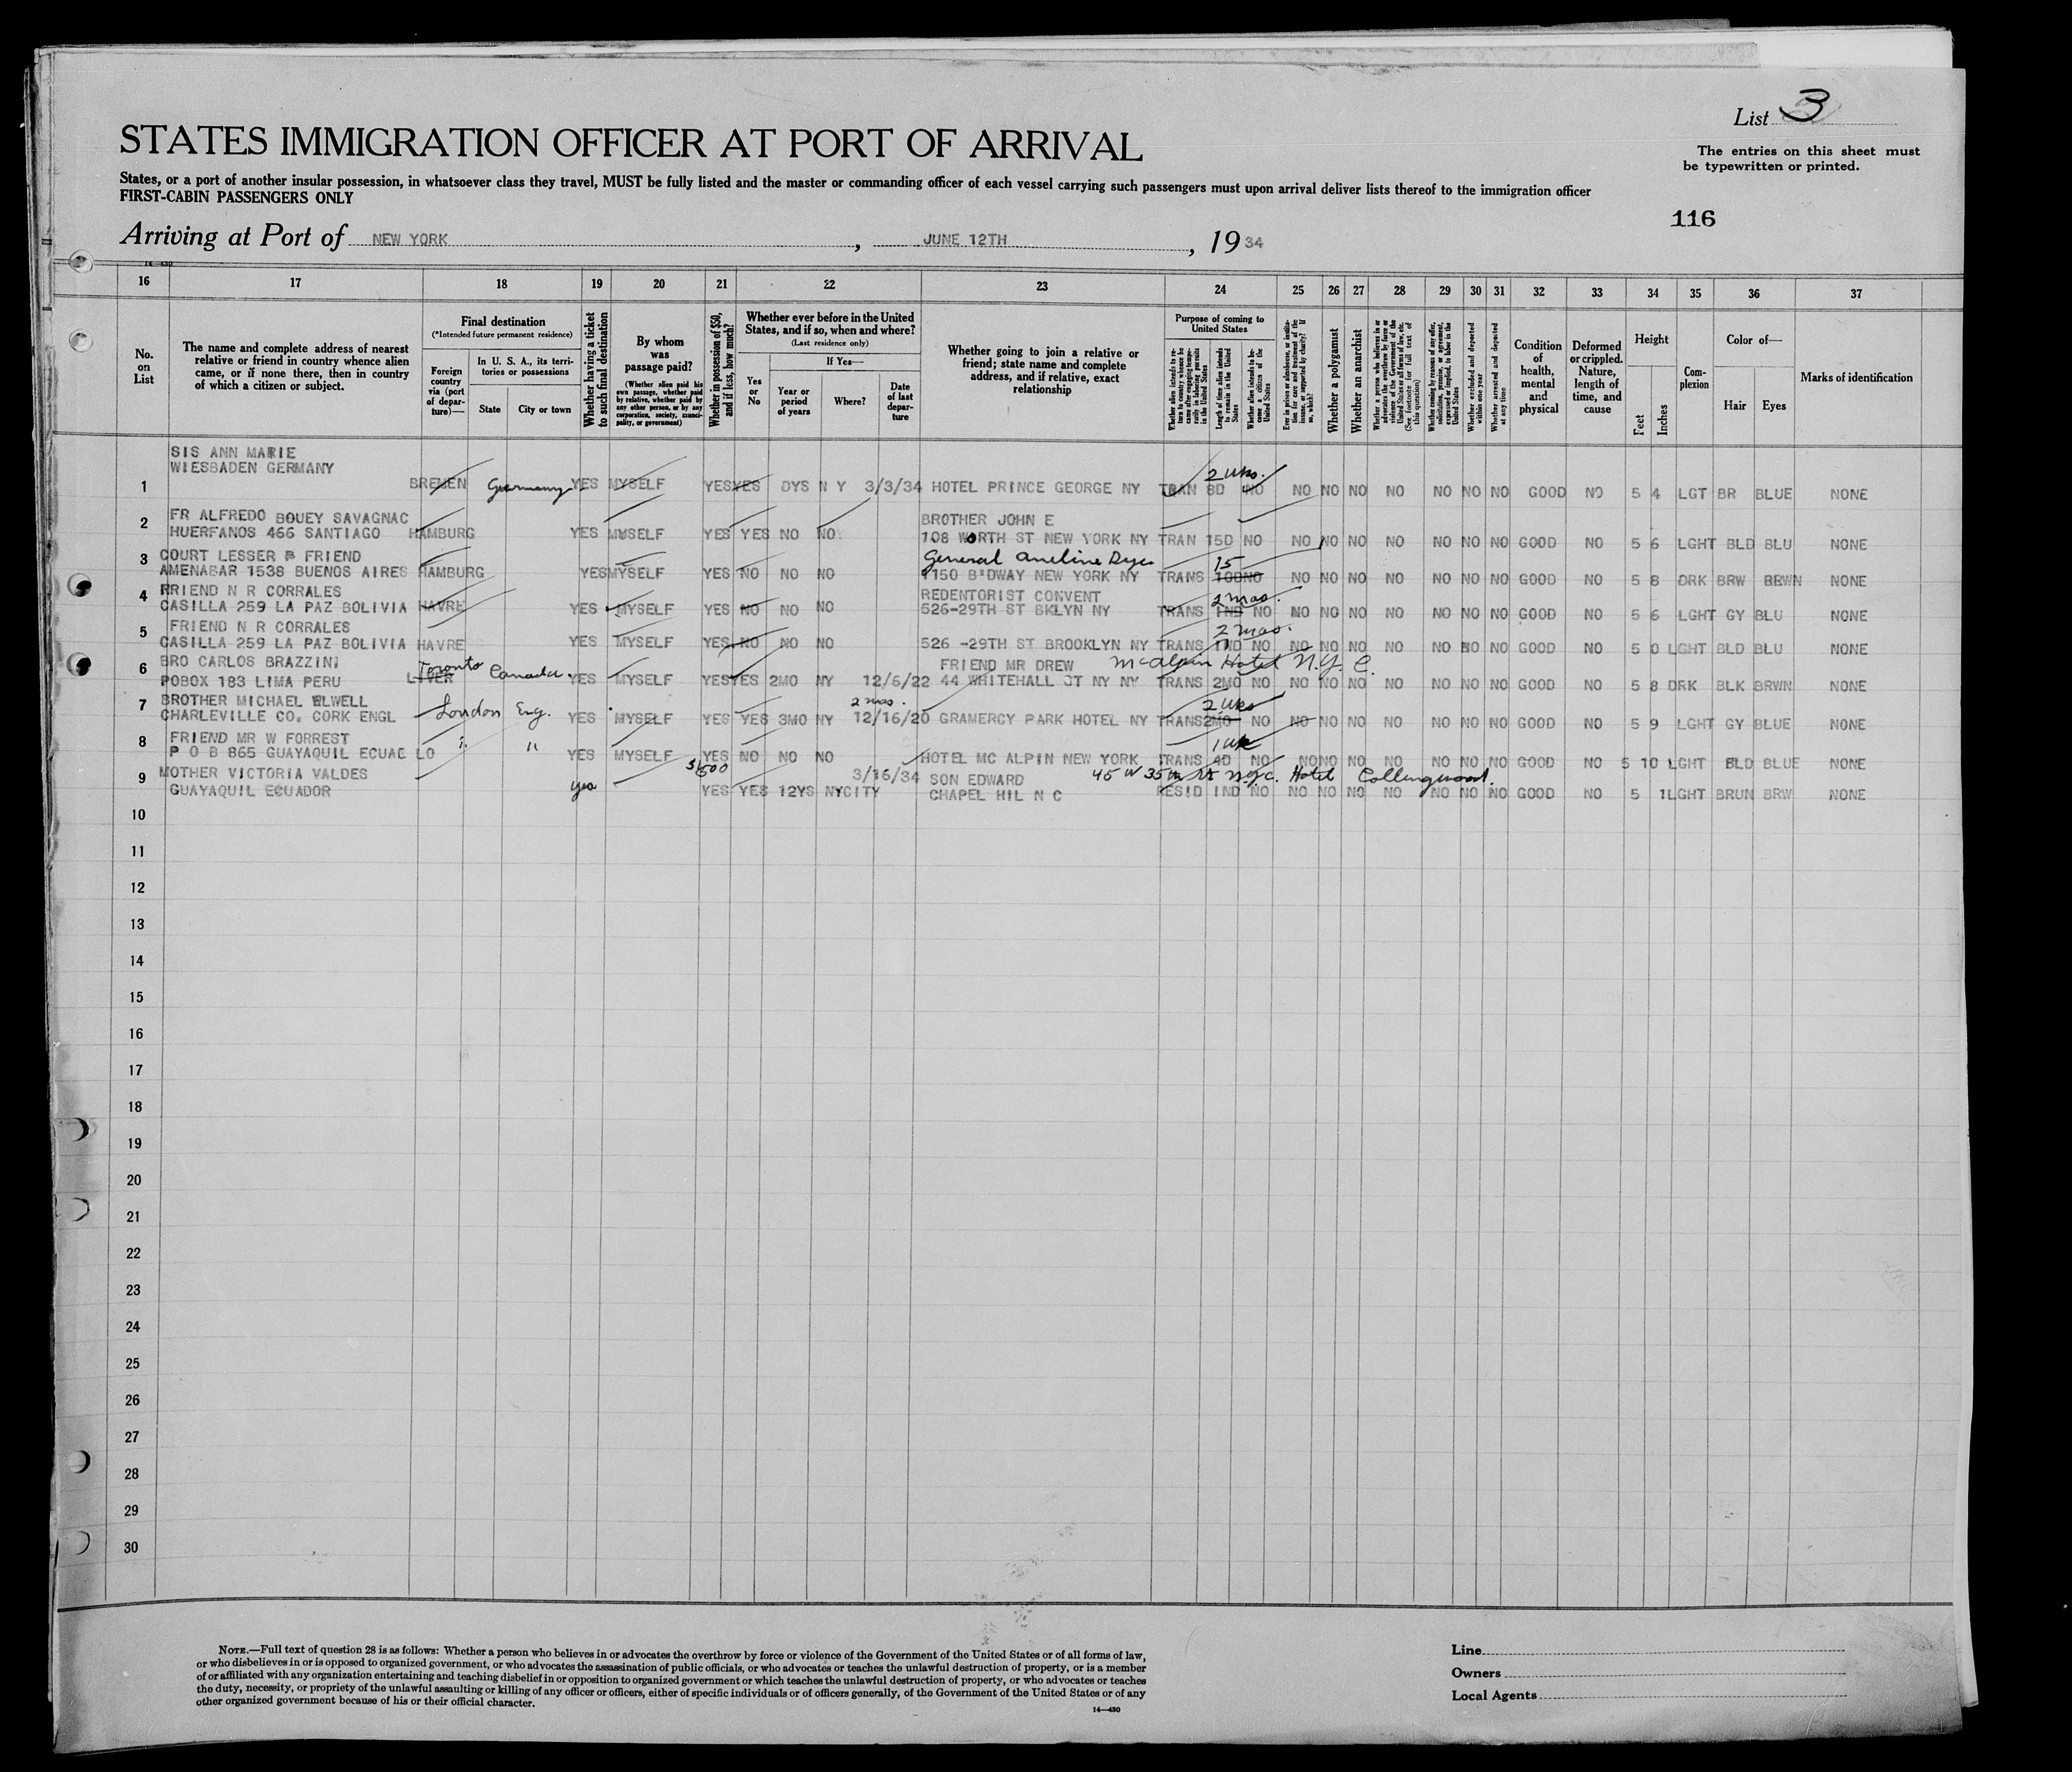 List 3
STATES IMMIGRATION OFFICER AT PORT OF ARRIVAL
The entries on this sheet must
be typewritten or printed.
States, or a port of another insular possession, in whatsoever class they travel, MUST be fully listed and the master or commanding officer of each vessel carrying such passengers must upon arrival deliver lists thereof to the immigration officer
FIRST-CABIN PASSENGERS ONLY
116
Arriving at Port of NEW YORK, JUNE 12TH, 1934
14—430
16 17 18 19 20 21 22 23 24 25 26 27 28 29 30 31 32 33 34 35 36 37
No. on List
The name and complete address of nearest relative or friend in country whence alien came, or if none there, then in country of which a citizen or subject.
Final destination
(*Intended future permanent residence)
Foreign country via (port of departure)—
In U. S. A., its territories or possessions
State City or town
Whether having a ticket to such final destination
By whom was passage paid?
(Whether alien paid his own passage, whether paid by relative, whether paid by any other person, or by any corporation, society, municipality, or government)
Whether in possession of $50, and if less, how much?
Whether ever before in the United States, and if so, when and where?
(Last residence only)
Yes or No
If Yes—
Year or period of years
Where?
Date of last departure
Whether going to join a relative or friend; state name and complete address, and if relative, exact relationship
Purpose of coming to United States
Length of time alien intends to remain in the United States
Whether alien intends to become a citizen of the United States
Whether a polygamist
Whether an anarchist
Whether excluded and deported within one year
Whether arrested and deported at any time
Condition of health, mental and physical
Deformed or crippled. Nature, length of time, and cause
Height
Feet Inches
Complexion
Color of—
Hair Eyes
Marks of identification
SIS ANN MARIE
WIESBADEN GERMANY
2 wks.
1 BREMEN Germany YES MYSELF YES YES DYS N Y 3/3/34 HOTEL PRINCE GEORGE NY TRAN 8D NO NO NO NO NO NO NO NO GOOD NO 5 4 LGT BR BLUE NONE
2 FR ALFREDO BOUEY SAVAGNAC BROTHER JOHN E
HUERFANOS 466 SANTIAGO HAMBURG YES MYSELF YES YES NO NO 108 WORTH ST NEW YORK NY TRAN 15D NO NO NO NO NO NO NO NO GOOD NO 5 6 LGHT BLD BLU NONE
3 COURT LESSER FRIEND General Aneline Dyes 15
AMENABAR 1538 BUENOS AIRES HAMBURG YES MYSELF YES NO NO NO 1150 B'DWAY NEW YORK NY TRANS 10D NO NO NO NO NO NO NO NO GOOD NO 5 8 DRK BRW BRWN NONE
4 FRIEND N R CORRALES REDENTORIST CONVENT 2 mos.
CASILLA 259 LA PAZ BOLIVIA HAVRE YES MYSELF YES NO NO NO 526-29TH ST BKLYN NY TRANS IND NO NO NO NO NO NO NO NO GOOD NO 5 6 LGHT GY BLU NONE
5 FRIEND N R CORRALES 2 mos.
CASILLA 259 LA PAZ BOLIVIA HAVRE YES MYSELF YES NO NO NO 526 -29TH ST BROOKLYN NY TRANS IND NO NO NO NO NO NO NO NO GOOD NO 5 0 LGHT BLD BLU NONE
6 BRO CARLOS BRAZZINI Toronto Canada FRIEND MR DREW McAlpin Hotel N.Y.C.
POBOX 183 LIMA PERU LIVER YES MYSELF YES YES 2MO NY 12/6/22 44 WHITEHALL ST NY NY TRANS 2MO NO NO NO NO NO NO NO NO GOOD NO 5 8 DRK BLK BRWN NONE
7 BROTHER MICHAEL ELWELL 2 mos. 2 wks
CHARLEVILLE CO. CORK ENGL London Eng. YES MYSELF YES YES 3MO NY 12/16/20 GRAMERCY PARK HOTEL NY TRANS 2MO NO NO NO NO NO NO NO NO GOOD NO 5 9 LGHT GY BLUE NONE
8 FRIEND MR W FORREST " " 1 wk
P O B 865 GUAYAQUIL ECUAD LO YES MYSELF YES NO NO NO HOTEL MC ALPIN NEW YORK TRANS 4D NO NO NO NO NO NO NO NO GOOD NO 5 10 LGHT BLD BLUE NONE
9 MOTHER VICTORIA VALDES $500 3/16/34 SON EDWARD 45 W 35th St N.Y.C. Hotel Collingwood.
GUAYAQUIL ECUADOR yes YES YES 12YS NYCITY CHAPEL HIL N C RESID IND NO NO NO NO NO NO NO NO GOOD NO 5 1 LGHT BRUN BRW NONE
10
11
12
13
14
15
16
17
18
19
20
21
22
23
24
25
26
27
28
29
30
NOTE.—Full text of question 28 is as follows: Whether a person who believes in or advocates the overthrow by force or violence of the Government of the United States or of all forms of law,
or who disbelieves in or is opposed to organized government, or who advocates the assassination of public officials, or who advocates or teaches the unlawful destruction of property, or is a member
of or affiliated with any organization entertaining and teaching disbelief in or opposition to organized government or which teaches the unlawful destruction of property, or who advocates or teaches
the duty, necessity, or propriety of the unlawful assaulting or killing of any officer or officers, either of specific individuals or of officers generally, of the Government of the United States or of any
other organized government because of his or their official character.
14—430
Line
Owners
Local Agents